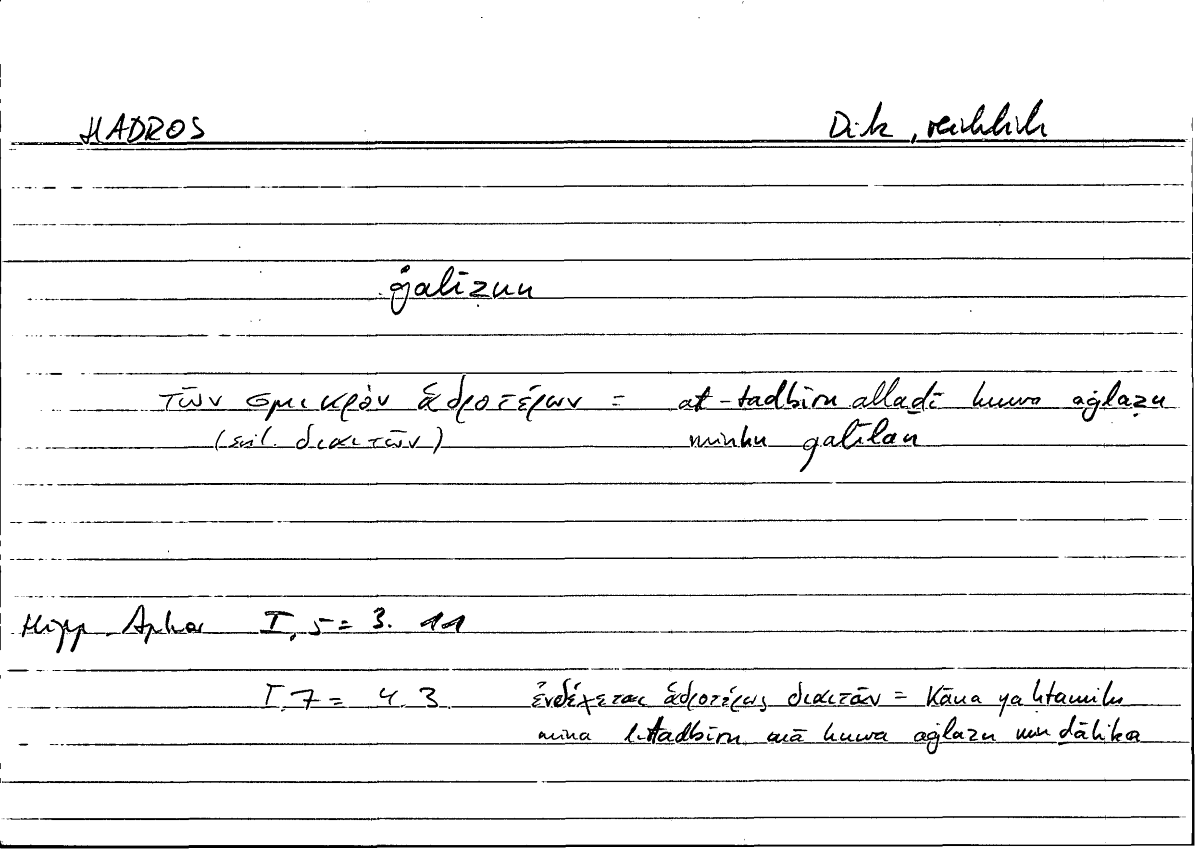 HADROS Dick, reichlich
ġalīẓun
τῶν σμικρὸν ἁδροτέρων = at-tadbīru allaḏī huwa aġlaẓu
(scil. διαιτῶν) minhu qalīlan
Hipp. Aphor I, 5 = 3. 11
I. 7 = 4. 3 ἐνδέχεται ἁδροτέρως διαιτᾶν = Kāna yaḥtamilu
mina t-tadbīru mā huwa aġlaẓu min ḏālika